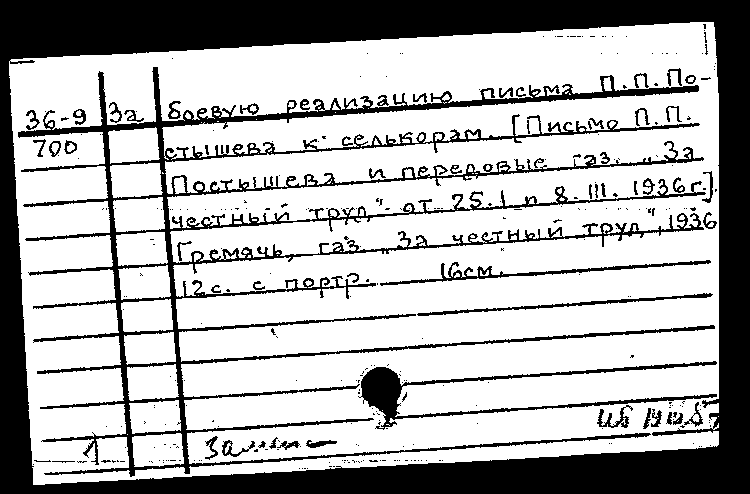 36-9 За боевую реализацию письма П.П.По-
700 стышева к селькорам. [Письмо П.П.
Постышева и передовые газ. „За
честный труд" от 25.I и 8.III.1936г.]
Гремячь, газ. „За честный труд", 1936
12с. с портр. 16см.
1